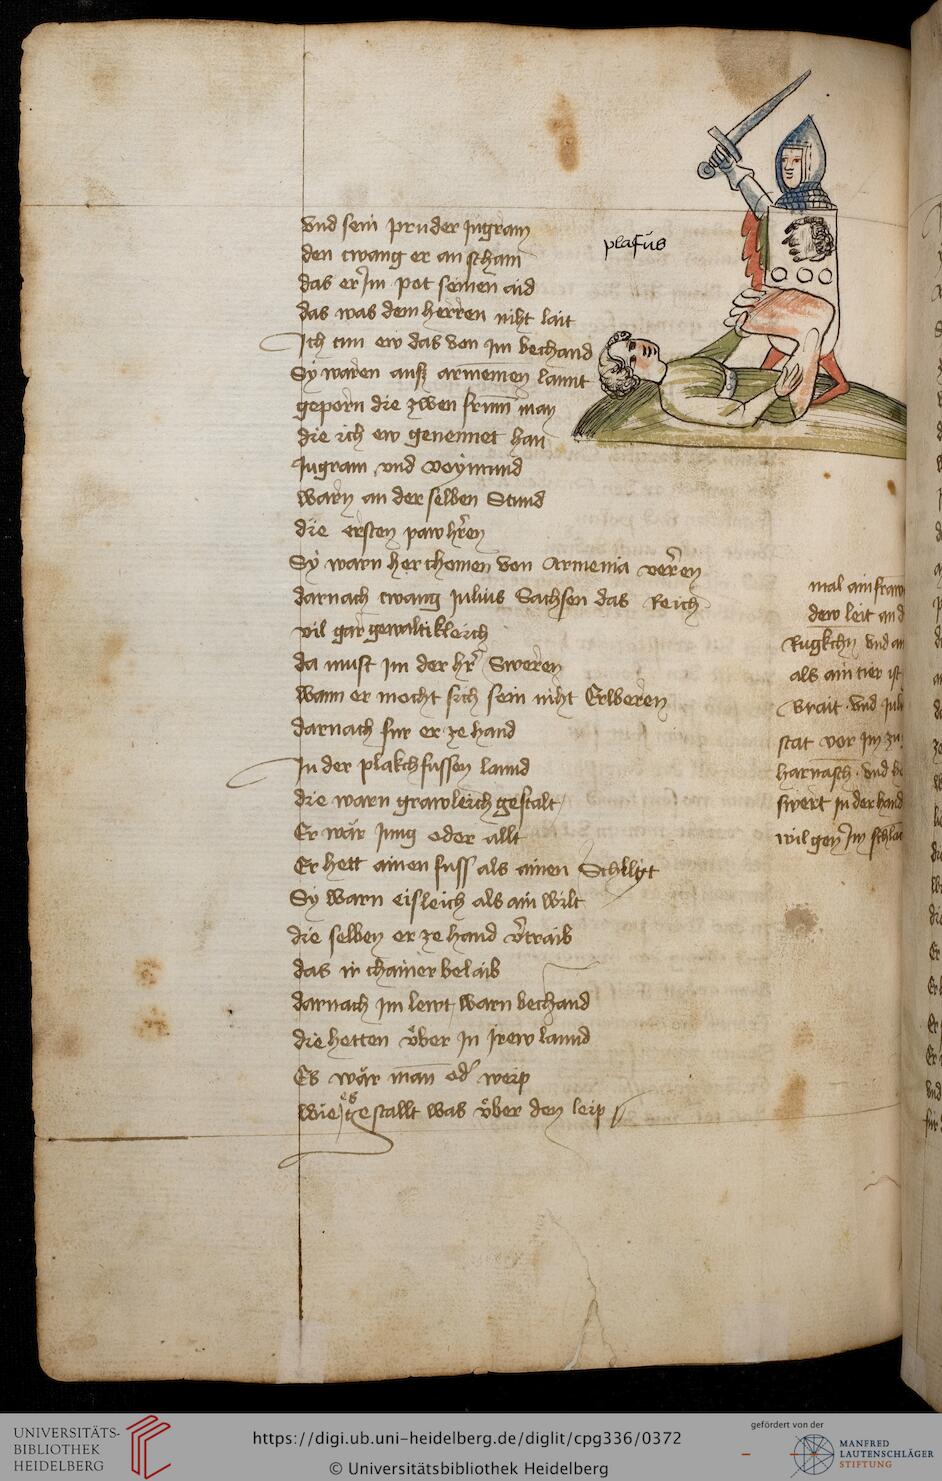 vnd sein pruder Ingram
den twang er an scham
das er Im pot seinen aid
das was dem herren niht lait
Ich tun ew das von im bechand
Sy waren auß armenien lannt
geporn die zwen frum man
die ich ew genennet han
Ingram vnd Poymund
warn an der selben Stund
die ersten paw hren
Sy warn her chomen von Armenia verren
darnach twang Julius Sachsen das Reich
vil gar gewaltikleich
da must im der hr Sweren
wann er mocht sich sein niht Erweren
darnach fur er ze hand
In der plakchfussen lannd
die warn grawleich gestalt
Er wär Jung oder allt
Er hett ainen fuss als ainen Schillt
Sy warn eisleich als ain wilt
die selben er ze hand vertraib
das ir chainer belaib
darnach im lewt warn bechand
die hetten über In Irew lannd
Es wär man oder weip
wie es gestallt was über den leip
plafüs
mal ain fraw
dew leit an d
Rugkchn vnd an
als ain tier ist
vrait vnd Juli
stat vor Im zu
harnasch vnd he
swert In der hand
wil gen Im schla
UNIVERSITÄTS-
BIBLIOTHEK
HEIDELBERG
https://digi.ub.uni-heidelberg.de/diglit/cpg336/0372
© Universitätsbibliothek Heidelberg
gefördert von der
MANFRED
LAUTENSCHLÄGER
STIFTUNG